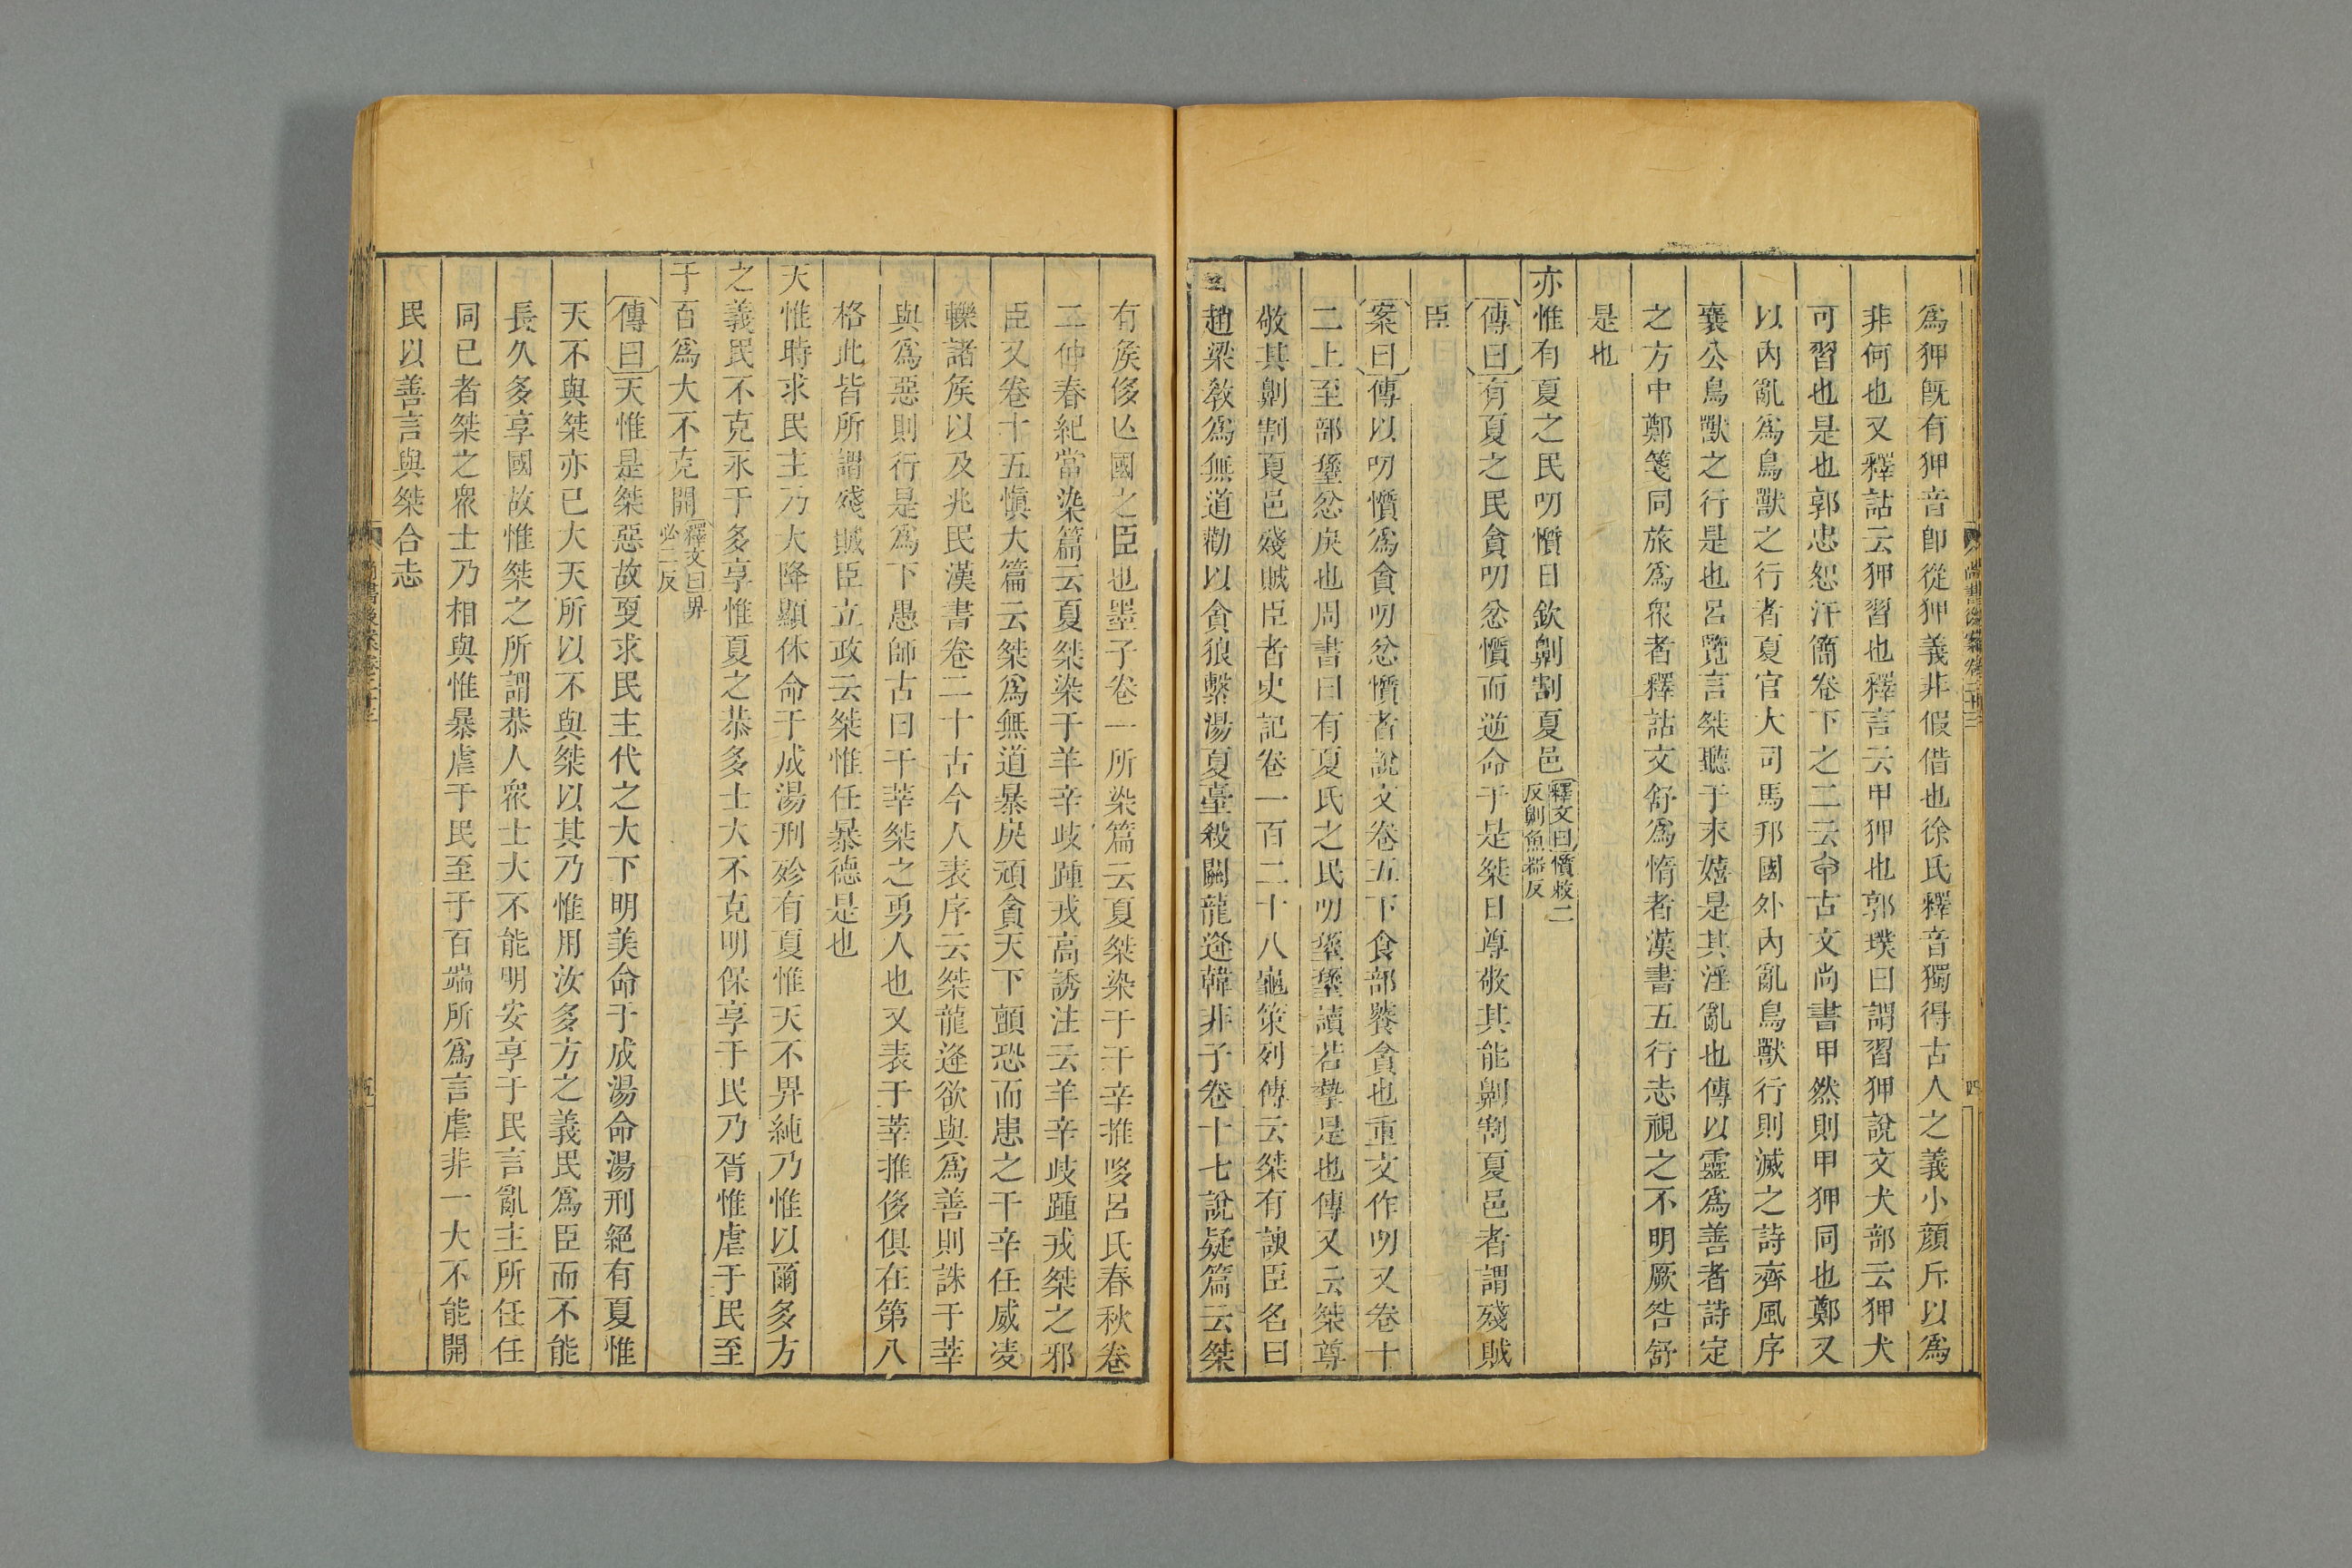 為狎旣有狎音卽從狎義非假借也徐氏釋音獨得古人之義小顔斥以為
非何也又釋詁云狎習也釋言云甲狎也郭璞曰謂習狎說文犬部云狎犬
可習也是也郭忠恕汗簡卷下之二云命古文尚書甲然則甲狎同也鄭又
以內亂為鳥獸之行者夏官大司馬邦國外內亂鳥獸行則滅之詩齊風序
襄公鳥獸之行是也呂覽言桀聽于末嬉是其淫亂也傳以靈為善者詩定
之方中鄭箋同旅為衆者釋詁文舒為惰者漢書五行志視之不明厥咎舒
是也
亦惟有夏之民叨懫日欽劓割夏邑釋文曰懫敕二反劓魚器反
傳曰有夏之民貪叨忿懫而逆命于是桀日尊敬其能劓割夏邑者謂殘賊
臣
案曰傳以叨懫為貪叨忿懫者說文卷五下食部饕貪也重文作叨又卷十
二上至部𡠗忿戾也周書曰有夏氏之民叨𡠗𡠗讀若摯是也傳又云桀尊
敬其劓割夏邑殘賊臣者史記卷一百二十八龜策列傳云桀有諛臣名曰
趙梁敎為無道勸以貪狼繫湯夏臺殺關龍逄韓非子卷十七說疑篇云桀
有矦侈亾國之臣也墨子卷一所染篇云夏桀染于干辛推哆呂氏春秋卷
二仲春紀當染篇云夏桀染于羊辛歧踵戎高誘注云羊辛歧踵戎桀之邪
臣又卷十五愼大篇云桀為無道暴戾頑貪天下顫恐而患之干辛任威凌
轢諸矦以及兆民漢書卷二十古今人表序云桀龍逄欲與為善則誅于莘
與為惡則行是為下愚師古曰干莘桀之勇人也又表于莘推侈俱在第八
格此皆所謂殘賊臣立政云桀惟任暴德是也
天惟時求民主乃大降顯休命于成湯刑殄有夏惟天不畀純乃惟以爾多方
之義民不克永于多享惟夏之恭多士大不克明保享于民乃胥惟虐于民至
于百為大不克開釋文曰畀必二反
傳曰天惟是桀惡故更求民主代之大下明美命于成湯命湯刑絕有夏惟
天不與桀亦已大天所以不與桀以其乃惟用汝多方之義民為臣而不能
長久多享國故惟桀之所謂恭人衆士大不能明安享于民言亂主所任任
同已者桀之衆士乃相與惟暴虐于民至于百端所為言虐非一大不能開
民以善言與桀合志